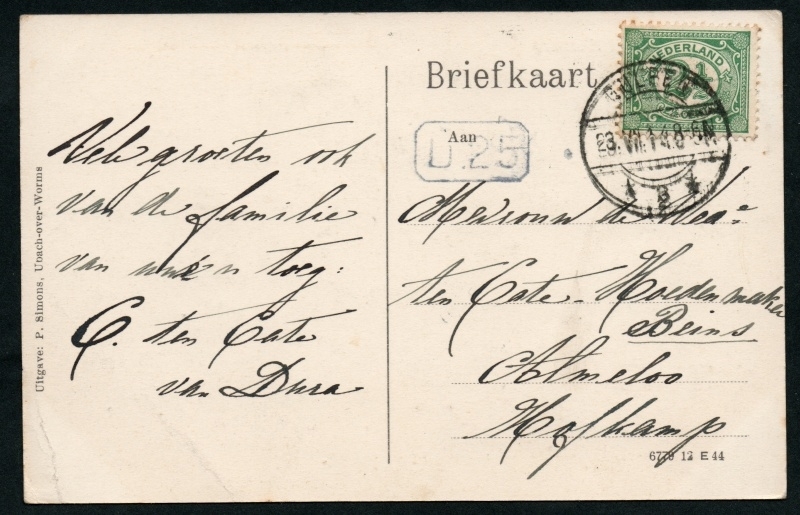 Briefkaart
NEDERLAND
GULPEN
3.VII.14.8-9N
Aan
D.25
Vele groeten ook
van de familie
van toeg:
C. ten Cate
van Dura
Mevrouw de Wed:
ten Cate - Hoedemaker
Beins
Almeloo
Hofkamp
Uitgave: P. Simons, Ubach-over-Worms
6779 12 E 44